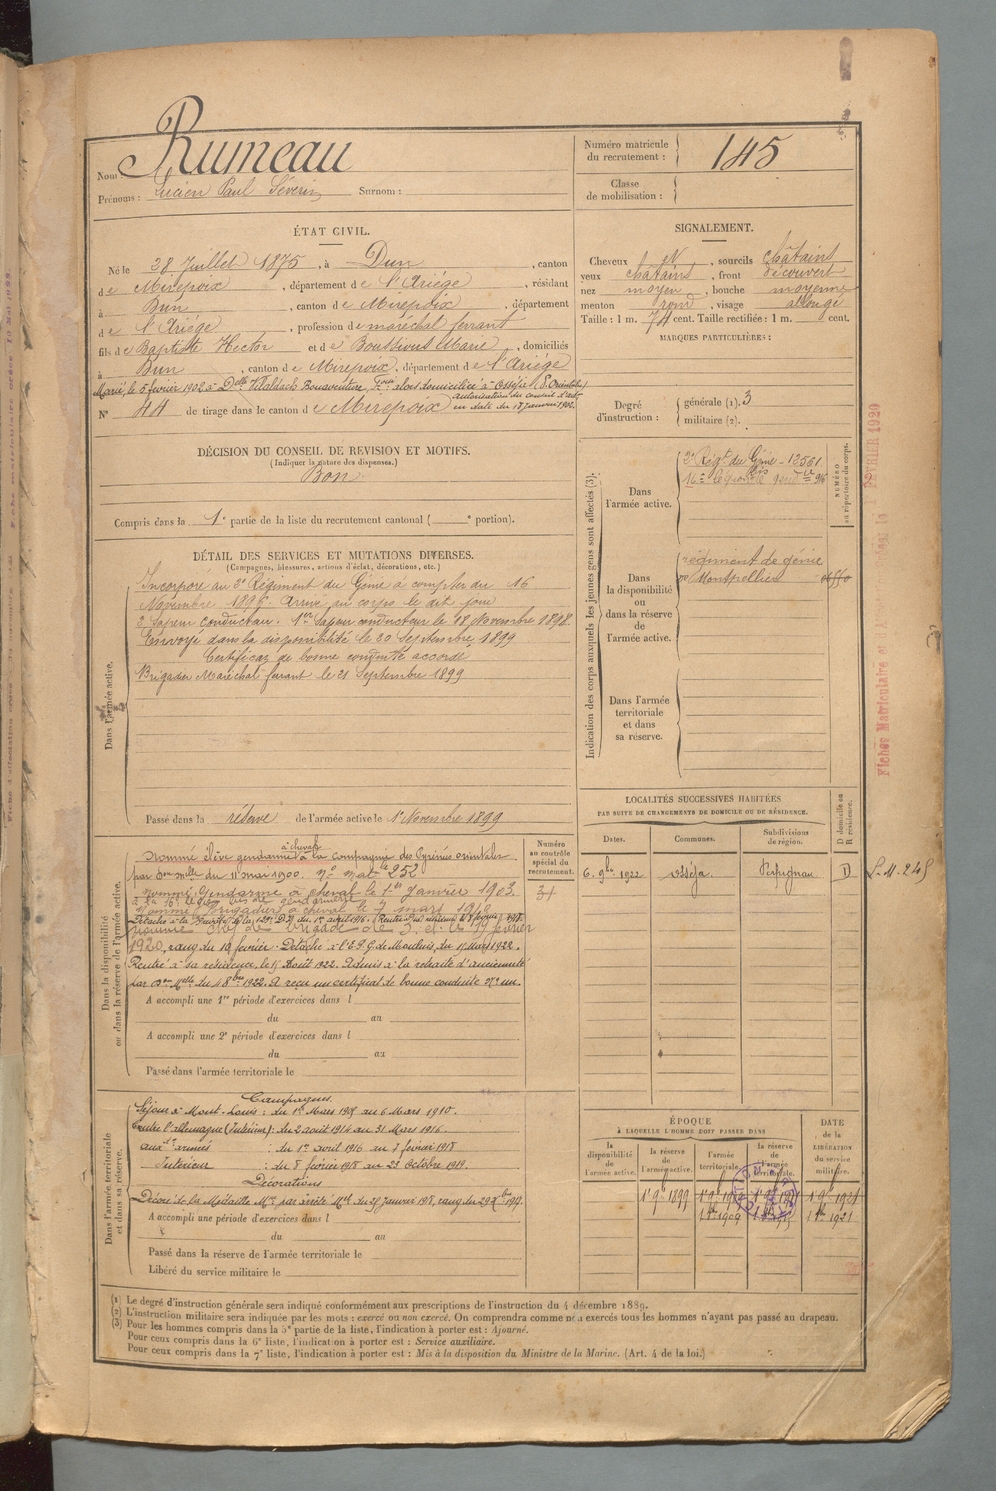 Rumeau
Nom :
Prénoms : Lucien Paul Séverin Surnom :
Numéro matricule du recrutement : 145
Classe de mobilisation :
ÉTAT CIVIL.
Né le 28 Juillet 1875, à Dun, canton
de Mirepoix, département de l'Ariège, résidant
à Dun, canton de Mirepoix, département
de l'Ariège, profession de maréchal ferrant
fils de Baptiste Hector et de Boussioux Marie, domiciliés
à Dun, canton de Mirepoix, département de l'Ariège
Marié, le 5 février 1902 à Delle Villalach Bonaventure, alors domiciliée à Osséja (P. Orientales)
autorisation du conseil d'adon
en date du 18 janvier 1902.
N° 44 de tirage dans le canton de Mirepoix
SIGNALEMENT.
Cheveux N, sourcils châtains
yeux châtains, front découvert
nez moyen, bouche moyenne
menton rond, visage allongé
Taille : 1 m. 74 cent. Taille rectifiée : 1 m. cent.
MARQUES PARTICULIÈRES :
Degré d'instruction : générale (1). 3
militaire (2).
DÉCISION DU CONSEIL DE REVISION ET MOTIFS.
(Indiquer la nature des dispenses.)
Bon
Compris dans la 1e partie de la liste du recrutement cantonal ( e portion).
DÉTAIL DES SERVICES ET MUTATIONS DIVERSES.
(Campagnes, blessures, actions d'éclat, décorations, etc.)
Dans l'armée active.
Incorporé au 2e Régiment du Génie à compter du 16
Novembre 1896. Arrivé au corps le dit jour
2e Sapeur conducteur. 1er Sapeur conducteur le 18 Novembre 1898.
Envoyé dans la disponibilité le 30 Septembre 1899
Certificat de bonne conduite accordé
Brigadier Maréchal ferrant le 21 Septembre 1899
Passé dans la réserve de l'armée active le 1er Novembre 1899
Indication des corps auxquels les jeunes gens sont affectés (3).
NUMÉRO au répertoire du corps.
Dans l'armée active.
2e Régt du Génie - 13561
Dans la disponibilité ou dans la réserve de l'armée active.
régiment de génie
Montpellier
Dans l'armée territoriale et dans sa réserve.
LOCALITÉS SUCCESSIVES HABITÉES
PAR SUITE DE CHANGEMENTS DE DOMICILE OU DE RÉSIDENCE.
Dates. Communes. Subdivisions de région. D domicile ou R résidence.
6. 9bre 1922 Osséja. Perpignan D
Dans la disponibilité ou dans la réserve de l'armée active.
Numéro au contrôle spécial du recrutement.
Nommé élève gendarme à cheval à la compagnie des Pyrénées orientales
par don mlle du 11 mai 1900. No mat le 252
Nommé Gendarme à cheval le 1er Janvier 1903.
Nommé Brigadier à cheval le 7 mars 1918
1920, rang du 19 février. Détaché à l'E.P.G. de Moulins, du 15 Mars 1922.
Rentré à sa résidence, le 15 Août 1922. Admis à la retraite d'ancienneté
par Don Melle du 18 bre 1922. A reçu un certificat de bonne conduite No un.
A accompli une 1re période d'exercices dans l
du au
A accompli une 2e période d'exercices dans l
du au
Passé dans l'armée territoriale le
Dans l'armée territoriale et dans sa réserve.
Campagnes.
Séjour à Mont-Louis : du 1er Mars 1905 au 6 Mars 1910.
Contre l'allemagne (Intérieur) : du 2 août 1914 au 31 Mars 1916.
aux armées : du 1er avril 1916 au 7 février 1918
Intérieur : du 8 février 1918 au 23 Octobre 1919.
Décorations
A accompli une période d'exercices dans l
du au
Passé dans la réserve de l'armée territoriale le
Libéré du service militaire le
ÉPOQUE
À LAQUELLE L'HOMME DOIT PASSER DANS
DATE de la LIBÉRATION du service militaire.
la disponibilité de l'armée active. la réserve de l'armée active. l'armée territoriale. la réserve de l'armée territoriale.
1er 9bre 1899
1921
(1) Le degré d'instruction générale sera indiqué conformément aux prescriptions de l'instruction du 4 décembre 1889.
(2) L'instruction militaire sera indiquée par les mots : exercé ou non exercé. On comprendra comme non exercés tous les hommes n'ayant pas passé au drapeau.
(3) Pour les hommes compris dans la 5e partie de la liste, l'indication à porter est : Ajourné.
Pour ceux compris dans la 6e liste, l'indication à porter est : Service auxiliaire.
Pour ceux compris dans la 7e liste, l'indication à porter est : Mis à la disposition du Ministre de la Marine. (Art. 4 de la loi.)